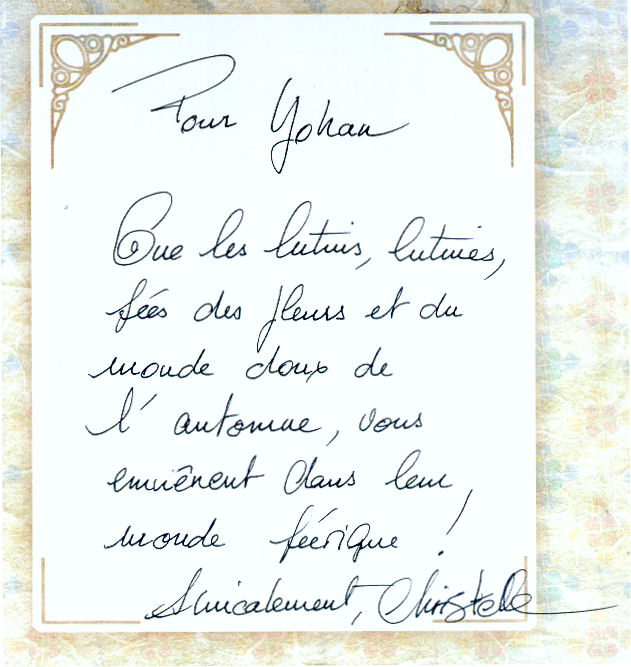 Pour Yohan
Que les lutins, lutines,
fées des fleurs et du
monde doux de
l'automne, vous
emmènent dans leur
monde féérique !
Amicalement, Christelle